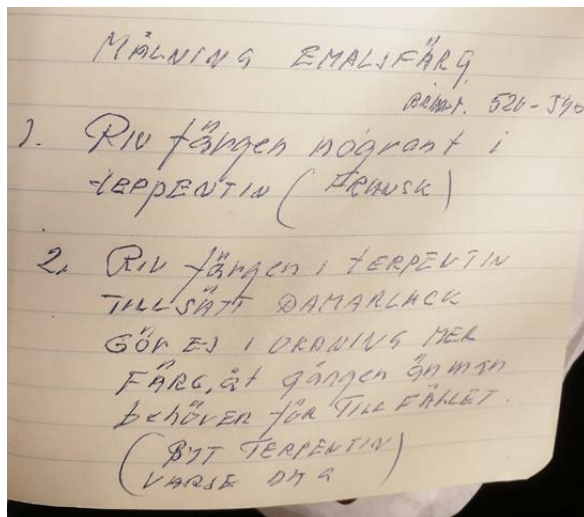 MÅLNING EMALJFÄRG
520-540
1. RIV färgen nogrant i
tERPENTIN (FRANSK)
2. RIV färgen i tERPENTIN
TILLSÄTT DAMARLACK
GÖR EJ I ORDNING MER
FÄRG, åt gången än man
behöVER för TILLFÄLLET.
(BYT TERPENTIN)
(VARJE DAG